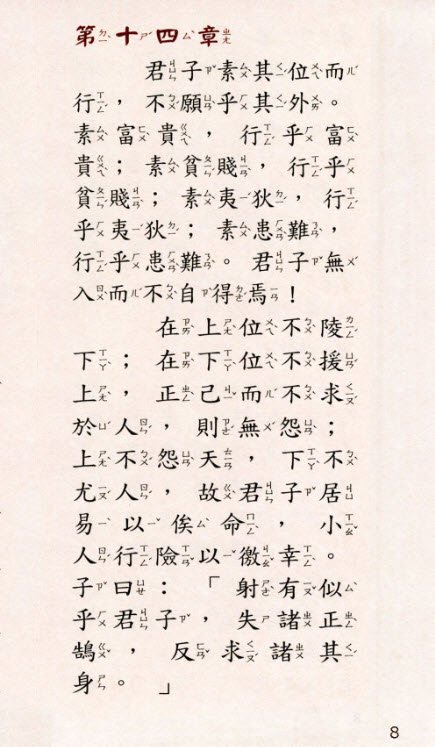 第十四章
君子素其位而
行，不願乎其外。
素富貴，行乎富
貴；素貧賤，行乎
貧賤；素夷狄，行
乎夷狄；素患難，
行乎患難。君子無
入而不自得焉！
在上位不陵
下；在下位不援
上，正己而不求
於人，則無怨；
上不怨天，下不
尤人，故君子居
易以俟命，小
人行險以徼幸。
子曰：「射有似
乎君子，失諸正
鵠，反求諸其
身。」
8